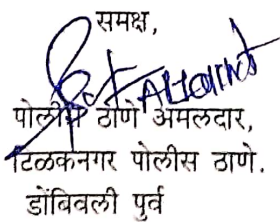 समक्ष,
पोलीस ठाणे अंमलदार,
टिळकनगर पोलीस ठाणे.
डोंबिवली पुर्व